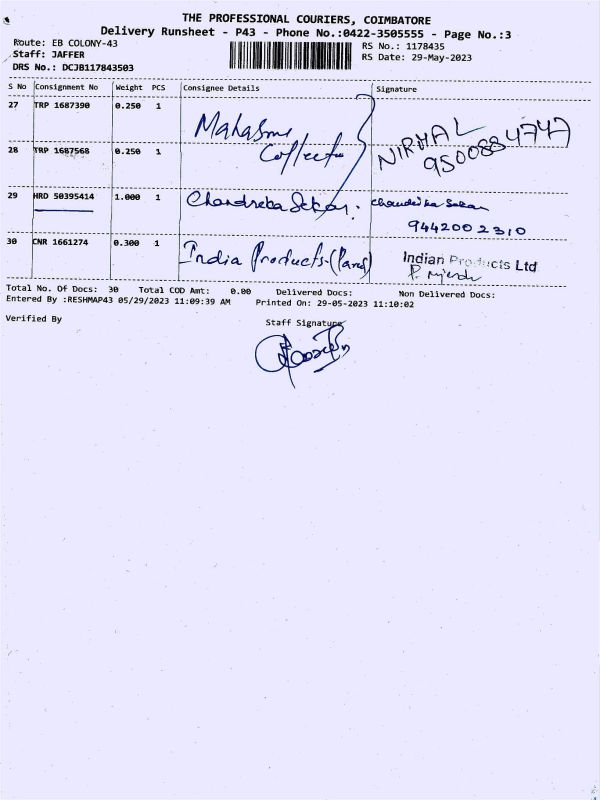 THE PROFESSIONAL COURIERS, COIMBATORE
Delivery Runsheet - P43 - Phone No.:0422-3505555 - Page No.:3
Route: EB COLONY-43
RS No.: 1178435
Staff: JAFFER
RS Date: 29-May-2023
DRS No.: DCJB117843503
S No Consignment No Weight PCS Consignee Details Signature
27 TRP 1687390 0.250 1
28 TRP 1687568 0.250 1
NIRMAL
9500884747
29 HRD 50395414 1.000 1 Chandreka Sekar.
9442002310
30 CNR 1661274 0.300 1 India Products
Indian Products Ltd
Total No. Of Docs: 30 Total COD Amt: 0.00 Delivered Docs: Non Delivered Docs:
Entered By :RESHMAP43 05/29/2023 11:09:39 AM Printed On: 29-05-2023 11:10:02
Verified By
Staff Signature